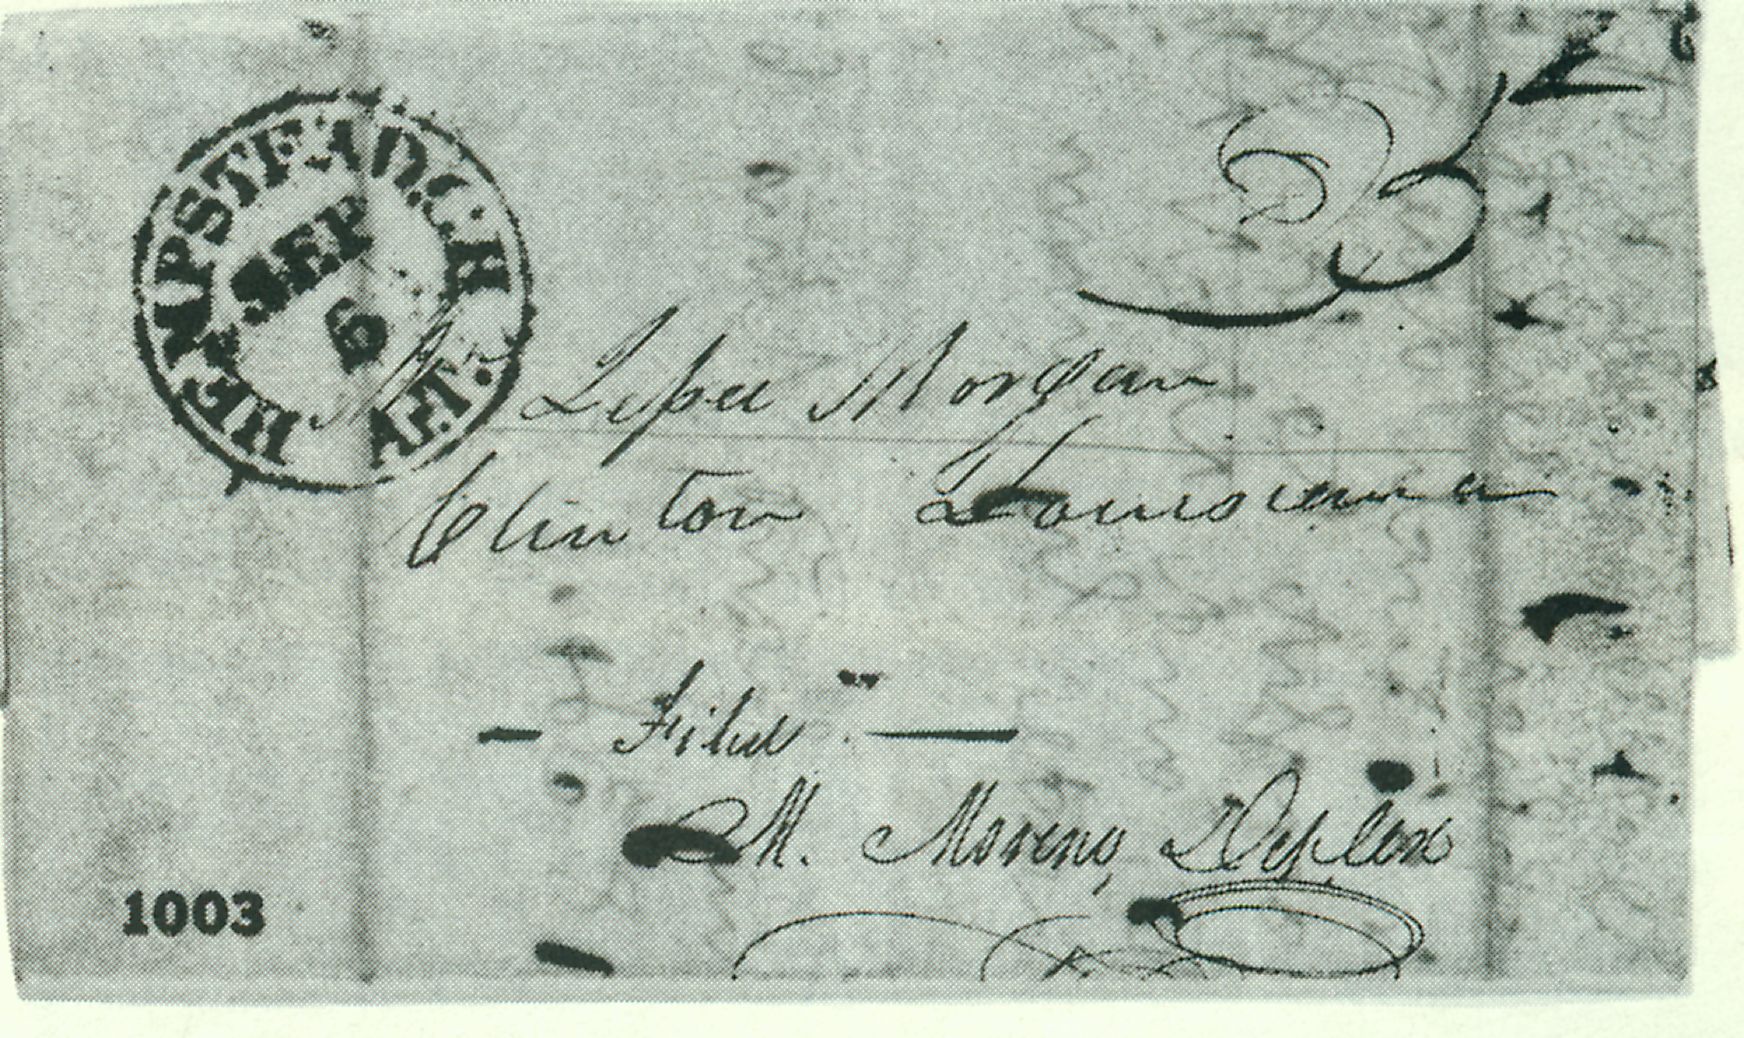 HEMPSTEAD.C.H
A.T.
SEP
6
25
Mr Lipee Morgan
Clinton Louisiana
Filed
M. Moreno,
1003